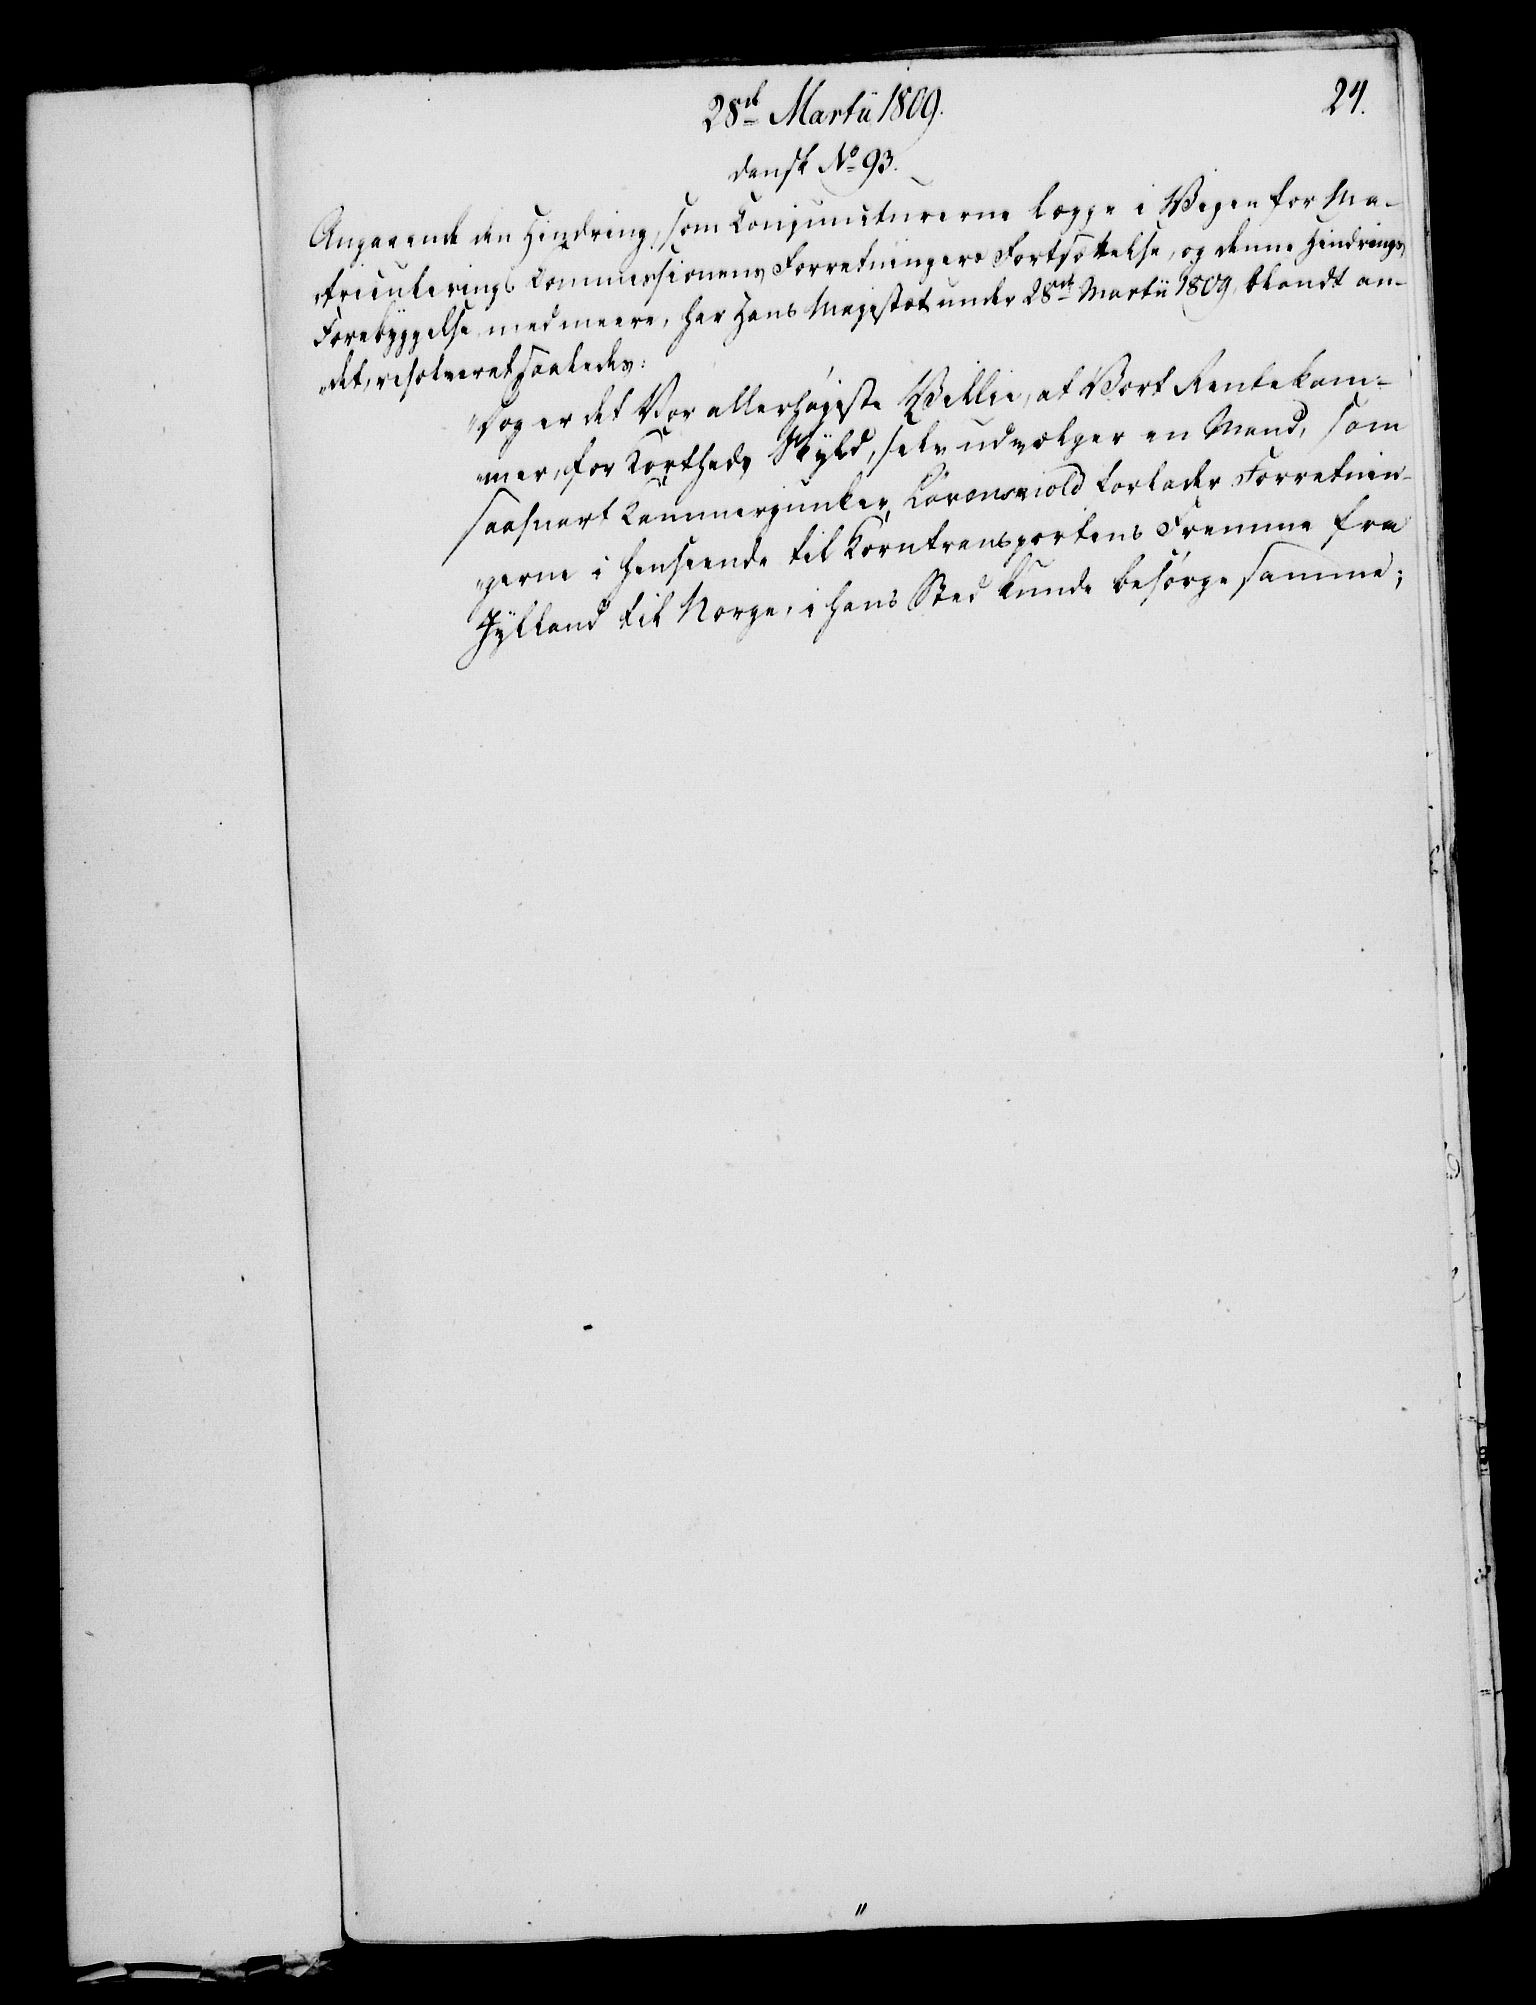 28de Martii 1809.
24.
dansk No 93.
Angaaende den Hindring, som Conjuncturerne lægge i Veyen for Ma-
„triculerings Commissionens Forretningers Fortsættelse, og denne Hindrings
Forebyggelse med meere, har Hans Majestæt under 28de Martii 1809, blandt an-
„det, resolveret saaledes:
„Og er det Vor allerhøjeste Villie, at Vort Rentekam-
„mer, for Korthed Skyld, selv udvælger en Mand, som
saasnart Kammerjunker Lövenskiold forlader Forretnin-
„gerne i Henseende til Korntransportens Fremme fra
Jylland til Norge, i hans Sted kunde besørge samme;